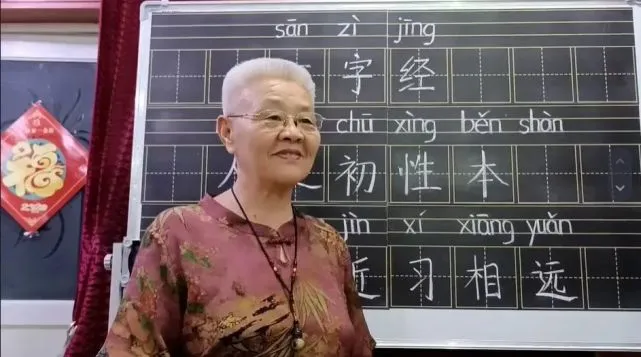 sān zì jīng
字 经
chū xìng běn shàn
初 性 本
jìn xí xiāng yuǎn
近 习 相 远
福